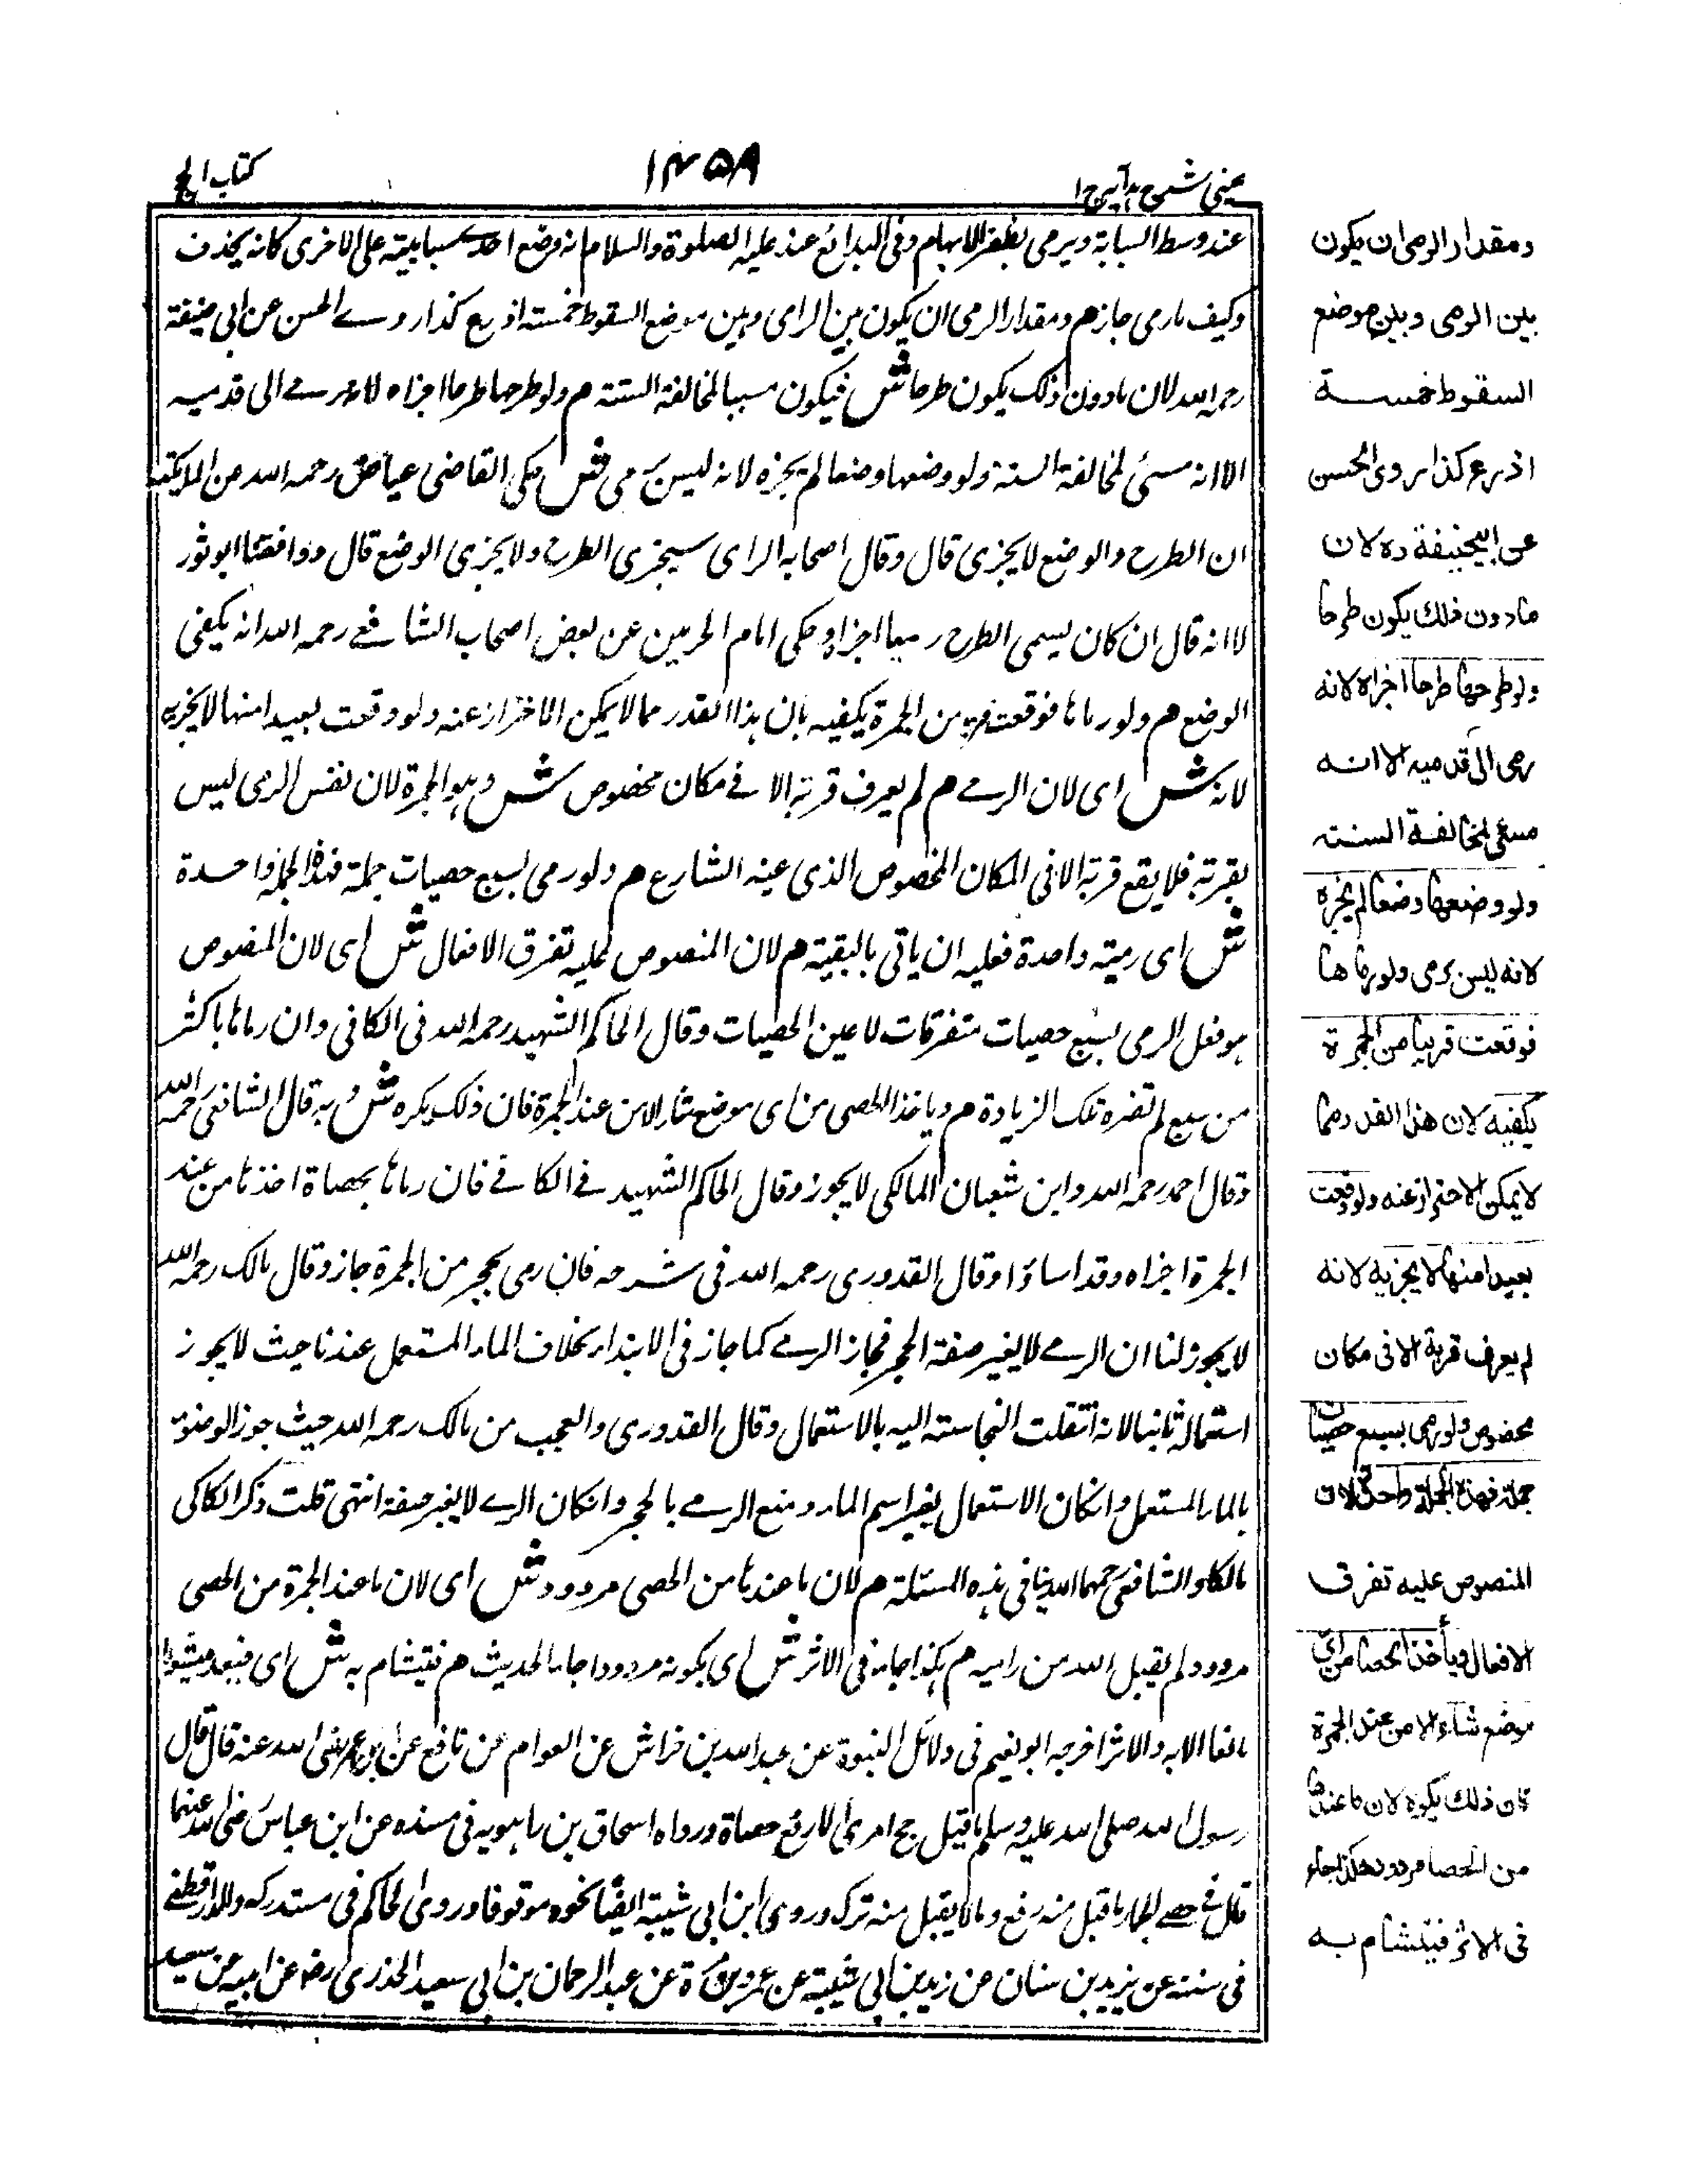 عینی شرح ہدایہ ج ۱
۱۴۵۸
کتاب الحج
عند وسط السبابة ويرمى بظفر الابهام وفى البدائع عند عليه الصلوة والسلام انه وضع احدى سبابتيه على الاخرى كانه يخذف
وكيف ما رمى جاز م ومقدار الرمى ان يكون بين الرامى وبين موضع السقوط خمسته اذرع كذا روى الحسن عن ابى حنيفة
رحمه الله لان ما دون ذلك يكون طرحا ش فيكون مسببا لمخالفة السنة م ولو طرحها طرحا اجزاه لانه رمى الى قدميه
الا انه مسئ لمخالفة السنة ولو وضعها وضعا لم يجزه لانه ليس برمى ش حكى القاضى عياض رحمه الله من المالكية
ان الطرح والوضع لا يجزى قال وقال اصحاب الراى سيجزى الطرح ولا يجزى الوضع قال ووافقنا ابو ثور
لا انه قال ان كان يسمى الطرح رميا اجزاه وحكى امام الحرمين عن بعض اصحاب الشافعى رحمه الله انه يكفى
الوضع م ولو رماها فوقعت قريبا من الجمرة يكفيه بان هذا القدر مما لا يمكن الاحتراز عنه ولو وقعت بعيدا منها لا يجزيه
لانه ش اى لان الرمى م لم يعرف قربة الا فى مكان مخصوص ش وهو الجمرة لان نفس الرمى ليس
بقربة فلا يقع قربة الا فى المكان المخصوص الذى عينه الشارع م ولو رمى بسبع حصيات جملة فهذه الجملة واحدة
ش اى رمية واحدة فعليه ان ياتى بالبقية م لان المنصوص عليه تفرق الافعال ش اى لان المنصوص
هو فعل الرمى بسبع حصيات متفرقات لا عين الحصيات وقال الحاكم الشهيد رحمه الله فى الكافى وان رماها باكثر
من سبع لم تضره تلك الزيادة م وياخذ الحصى من اى موضع شاء الا من عند الجمرة فان ذلك يكره ش وبه قال الشافعى رحمه الله
وقال احمد رحمه الله وابن شعبان المالكى لا يجوز وقال الحاكم الشهيد فى الكافى فان رماها بحصاة اخذها من عند
الجمرة اجزاه وقد اساؤا وقال القدورى رحمه الله فى شرحه فان رمى بحجر من الجمرة جاز وقال مالك رحمه الله
لا يجوز لنا ان الرمى لا يغير صفة الحجر فجاز الرمى كما جاز فى الابتداء بخلاف الماء المستعمل عندنا حيث لا يجوز
استعماله ثانيا لانه انتقلت النجاسته اليه بالاستعمال وقال القدورى والعجب من مالك رحمه الله حيث جوز الوضوء
بالماء المستعمل وان كان الاستعمال يغير اسم الماء ومنع الرمى بالحجر وان كان الرمى لا يغير صفة انتهى قلت ذكر الكاكى
مالكا والشافعى رحمهما الله ينافى هذه المسئلة م لان ما عندها من الحصى مردود ش اى لان ما عند الجمرة من الحصى
مردود لم يقبل الله من راميه م هكذا جاء فى الاثر ش اى بكونه مردودا جاء الحديث م فيتشام به ش اى فبعد ميشوا
بالفا الابه والاثر اخرجه ابو نعيم فى دلائل النبوة عن عبد الله بن خراش عن العوام عن نافع عن ابن عمر رضى الله عنه قال قال
رسول الله صلى الله عليه وسلم ما قبل حج امرئ الا رفع حصاة ورواه اسحاق بن راهويه فى مسنده عن ابن عباس رضى الله عنهما
قال فى حصى الجمار ما قبل منه رفع وما لا يقبل منه ترك وروى ابن ابى شيبة ايضا نحوه موقوفا وروى الحاكم فى مستدركه والدارقطنى
فى سننه عن يزيد بن سنان عن زيد بن ابى شيبة عن عمرو بن مرة عن عبد الرحمان بن ابى سعيد الخدرى رض عن ابيه عن سعيد
ومقدار الرمى ان يكون
بين الرمى وبين موضع
السقوط خمسة
اذرع كذا روى الحسن
عن ابيحنيفة ره لان
ما دون ذلك يكون طرحا
ولو طرحها طرحا اجزاه لانه
رمى الى قدميه الا انه
مسئ لمخالفة السنة
ولو وضعها وضعا لم يجزه
لانه ليس برمى ولو رماها
فوقعت قريبا من الجمرة
يكفيه لان هذا القدر مما
لا يمكن الاحتراز عنه ولو وقعت
بعيدا منها لا يجزيه لانه
لم يعرف قربة الا فى مكان
مخصوص ولو رمى بسبع حصيات
جملة فهذه الجملة واحدة لان
المنصوص عليه تفرق
الافعال ويأخذ الحصا من اى
موضع شاء الا من عند الجمرة
فان ذلك يكره لان ما عندها
من الحصا مردود هكذا جاء
فى الاثر فيتشام به